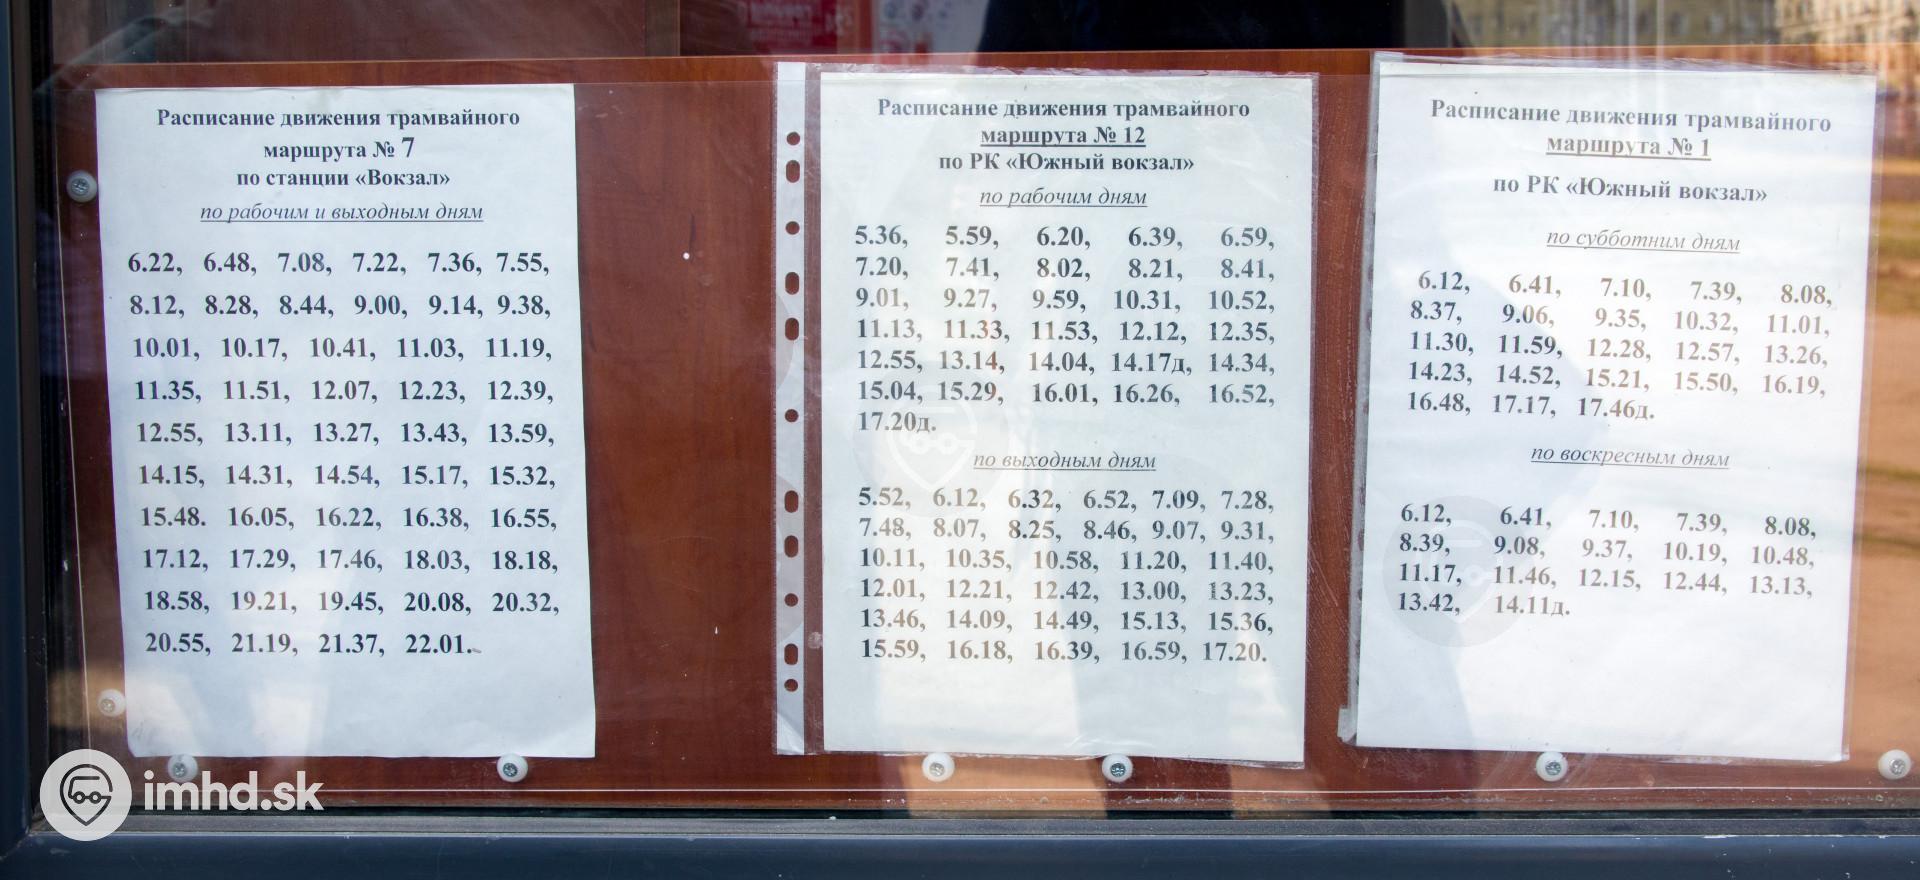 Расписание движения трамвайного
маршрута № 7
по станции «Вокзал»
по рабочим и выходным дням
6.22, 6.48, 7.08, 7.22, 7.36, 7.55,
8.12, 8.28, 8.44, 9.00, 9.14, 9.38,
10.01, 10.17, 10.41, 11.03, 11.19,
11.35, 11.51, 12.07, 12.23, 12.39,
12.55, 13.11, 13.27, 13.43, 13.59,
14.15, 14.31, 14.54, 15.17, 15.32,
15.48. 16.05, 16.22, 16.38, 16.55,
17.12, 17.29, 17.46, 18.03, 18.18,
18.58, 19.21, 19.45, 20.08, 20.32,
20.55, 21.19, 21.37, 22.01.
Расписание движения трамвайного
маршрута № 12
по РК «Южный вокзал»
по рабочим дням
5.36, 5.59, 6.20, 6.39, 6.59,
7.20, 7.41, 8.02, 8.21, 8.41,
9.01, 9.27, 9.59, 10.31, 10.52,
11.13, 11.33, 11.53, 12.12, 12.35,
12.55, 13.14, 14.04, 14.17д, 14.34,
15.04, 15.29, 16.01, 16.26, 16.52,
17.20д.
по выходным дням
5.52, 6.12, 6.32, 6.52, 7.09, 7.28,
7.48, 8.07, 8.25, 8.46, 9.07, 9.31,
10.11, 10.35, 10.58, 11.20, 11.40,
12.01, 12.21, 12.42, 13.00, 13.23,
13.46, 14.09, 14.49, 15.13, 15.36,
15.59, 16.18, 16.39, 16.59, 17.20.
Расписание движения трамвайного
маршрута № 1
по РК «Южный вокзал»
по субботним дням
6.12, 6.41, 7.10, 7.39, 8.08,
8.37, 9.06, 9.35, 10.32, 11.01,
11.30, 11.59, 12.28, 12.57, 13.26,
14.23, 14.52, 15.21, 15.50, 16.19,
16.48, 17.17, 17.46д.
по воскресным дням
6.12, 6.41, 7.10, 7.39, 8.08,
8.39, 9.08, 9.37, 10.19, 10.48,
11.17, 11.46, 12.15, 12.44, 13.13,
13.42, 14.11д.
imhd.sk